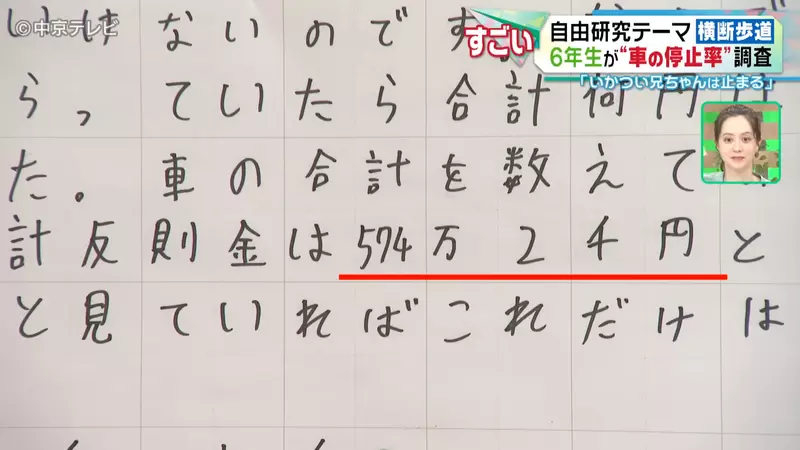 ©中京テレビ
すごい
自由研究テーマ 横断歩道
6年生が"車の停止率"調査
「いかつい兄ちゃんは止まる」
いけないので
らっていたら合計何円
た。車の合計を数えて
計反則金は574万2千円と
と見ていればこれだけは